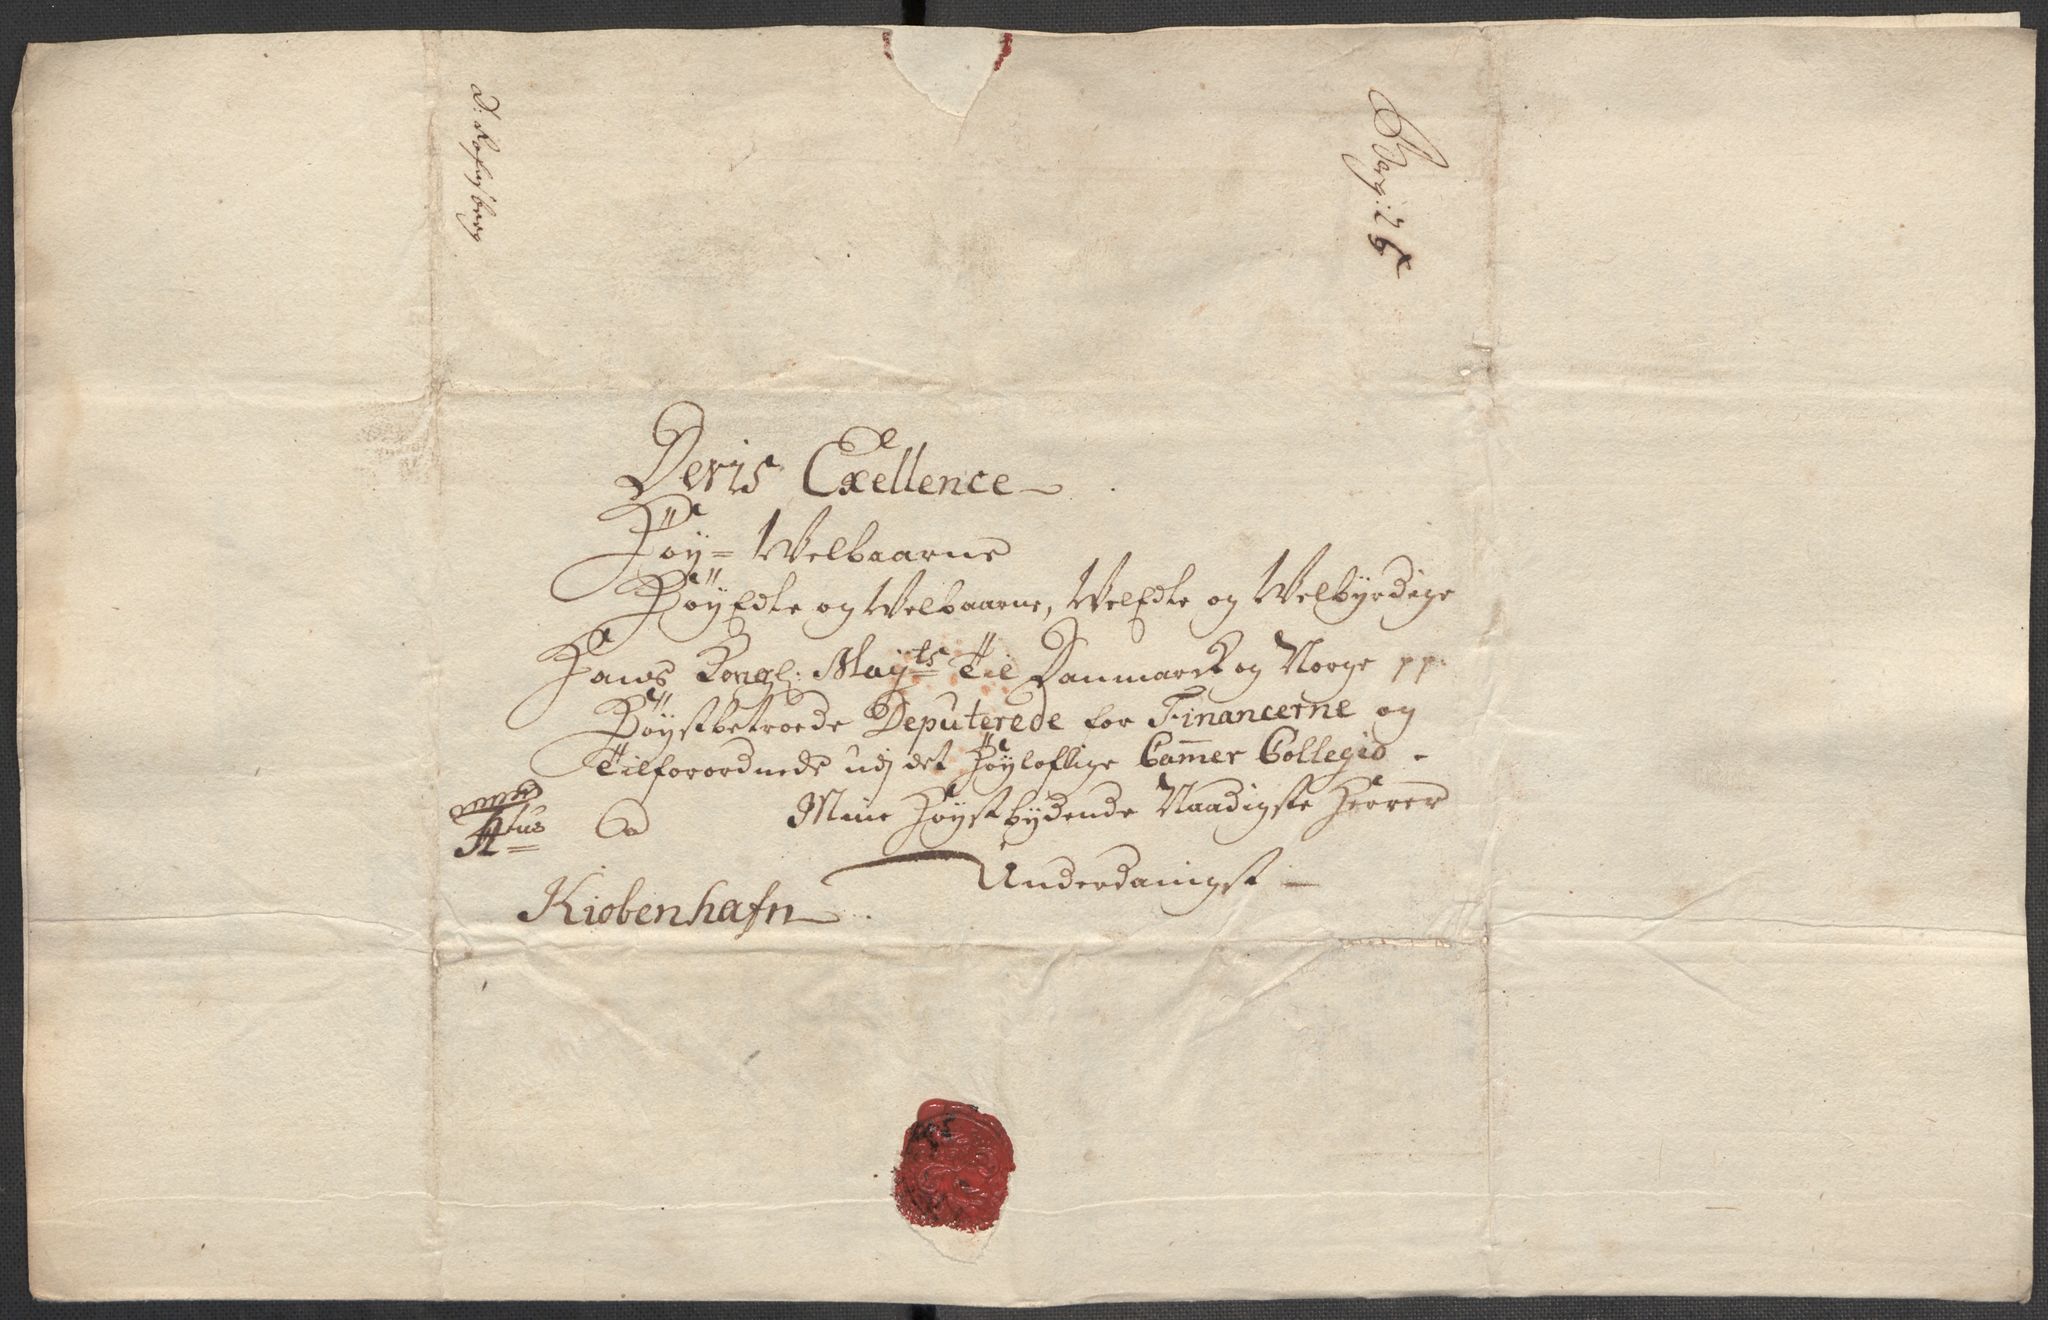 Deris Exellence
Høy= Welbaarne
HøyEdle og Welbaarne, WelEdle og Welbyrdige
Hans Kongl: Mayts Til Danmark og Norge pp:
Høystbetroede Deputerede for Financerne og
Tilforordnede udj det Høyloflige Cam̅er Collegio
Mine Høystbydende Naadigste Herrer
a
Underdanigst
Kiøbenhafn